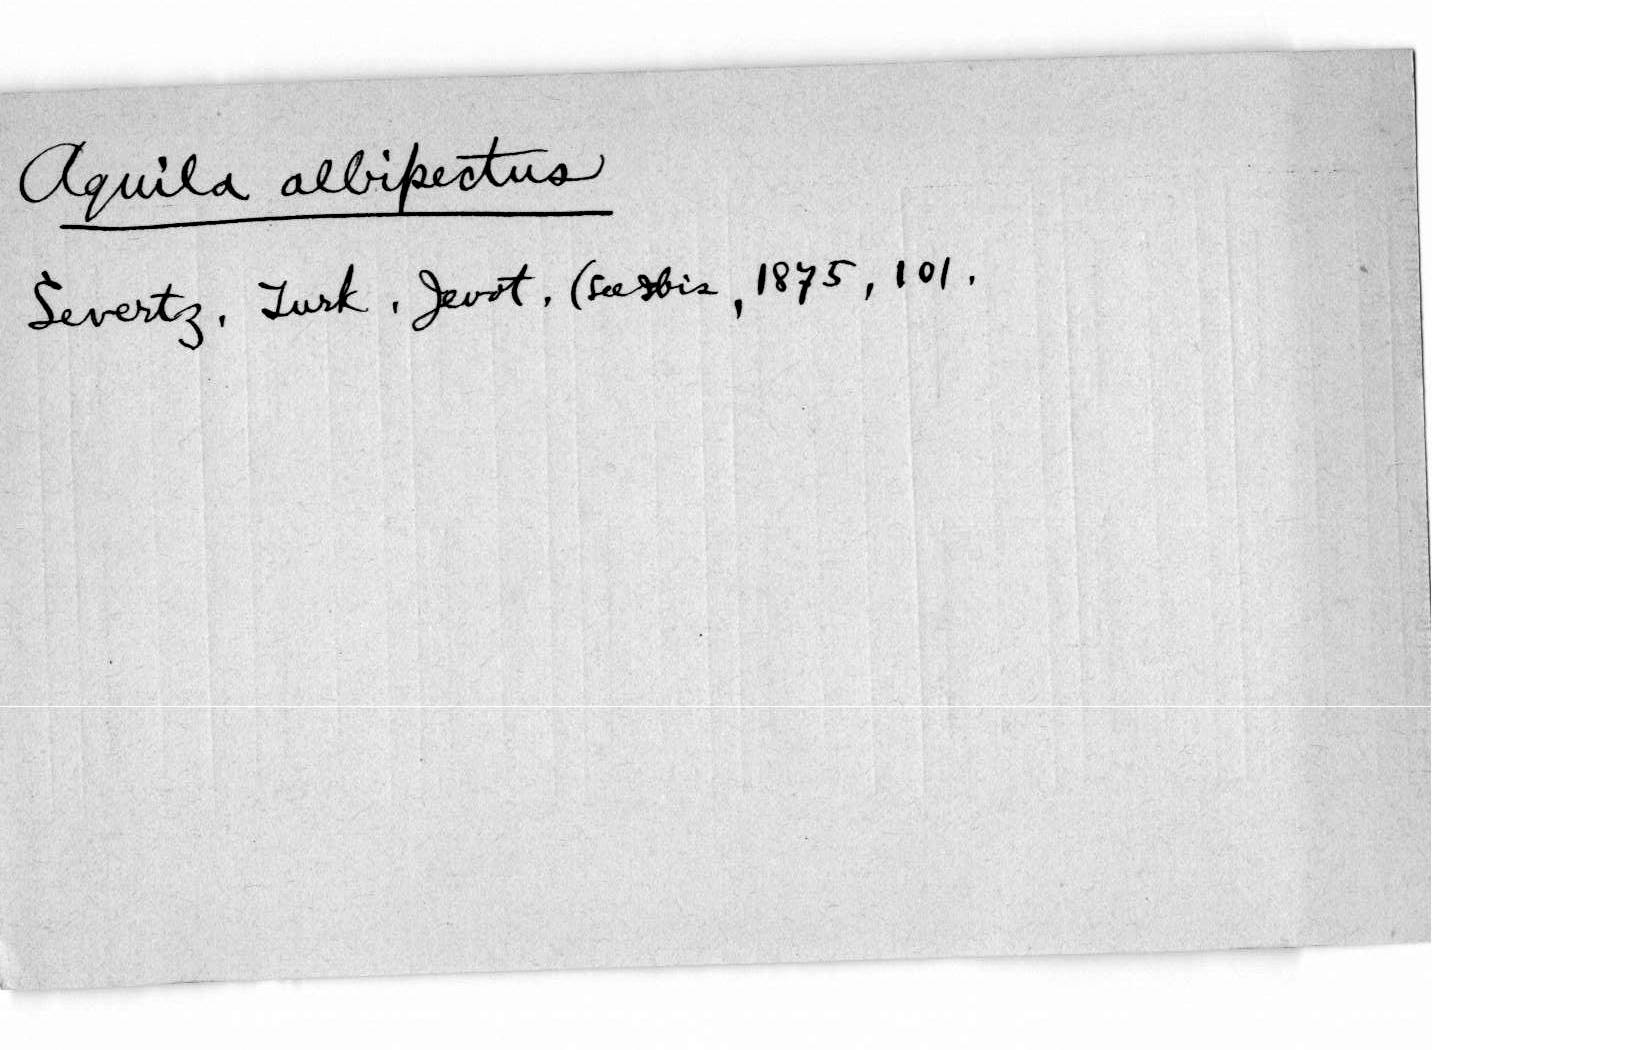 Aquila albipectus
Severtz, Turk. Jevot, (See Ibis, 1875, 101.